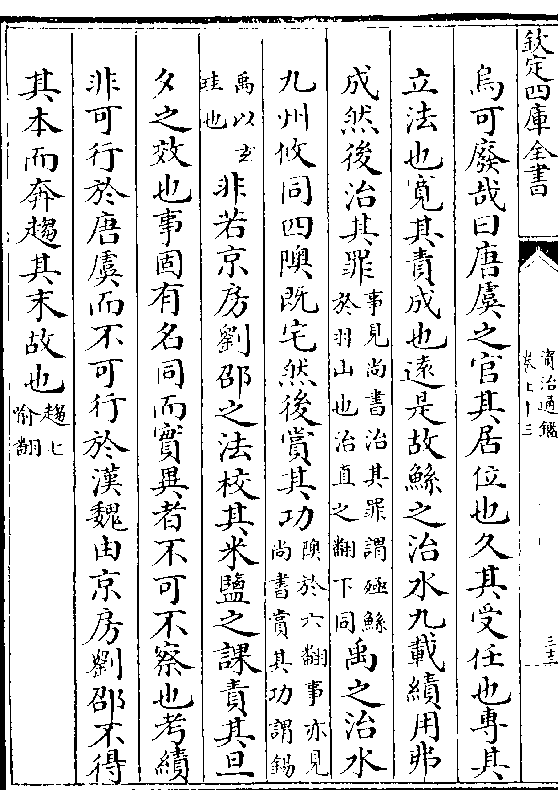 欽定四庫全書
資治通鑑
卷七十三
三十二
烏可廢哉曰唐虞之官其居位也久其受任也專其
立法也寛其責成也遠是故鯀之治水九載績用弗
成然後治其罪事見尚書治其罪謂殛鯀於羽山也治直之翻下同禹之治水
九州攸同四隩既宅然後賞其功隩於六翻事亦見尚書賞其功謂錫
禹以玄圭也非若京房劉邵之法校其米鹽之課責其旦
夕之效也事固有名同而實異者不可不察也考績
非可行於唐虞而不可行於漢魏由京房劉邵不得
其本而奔趨其末故也趨七喻翻